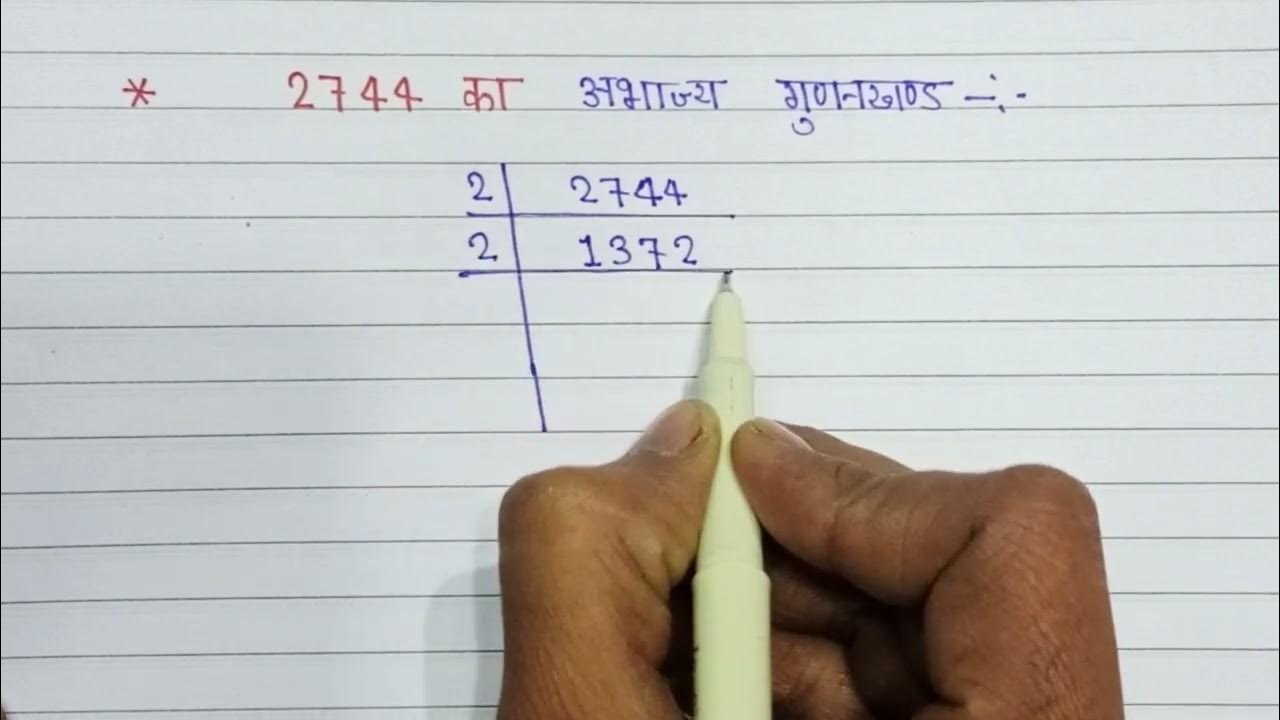 * 2744 का अभाज्य गुणनखण्ड —:-
2 2744
2 1372